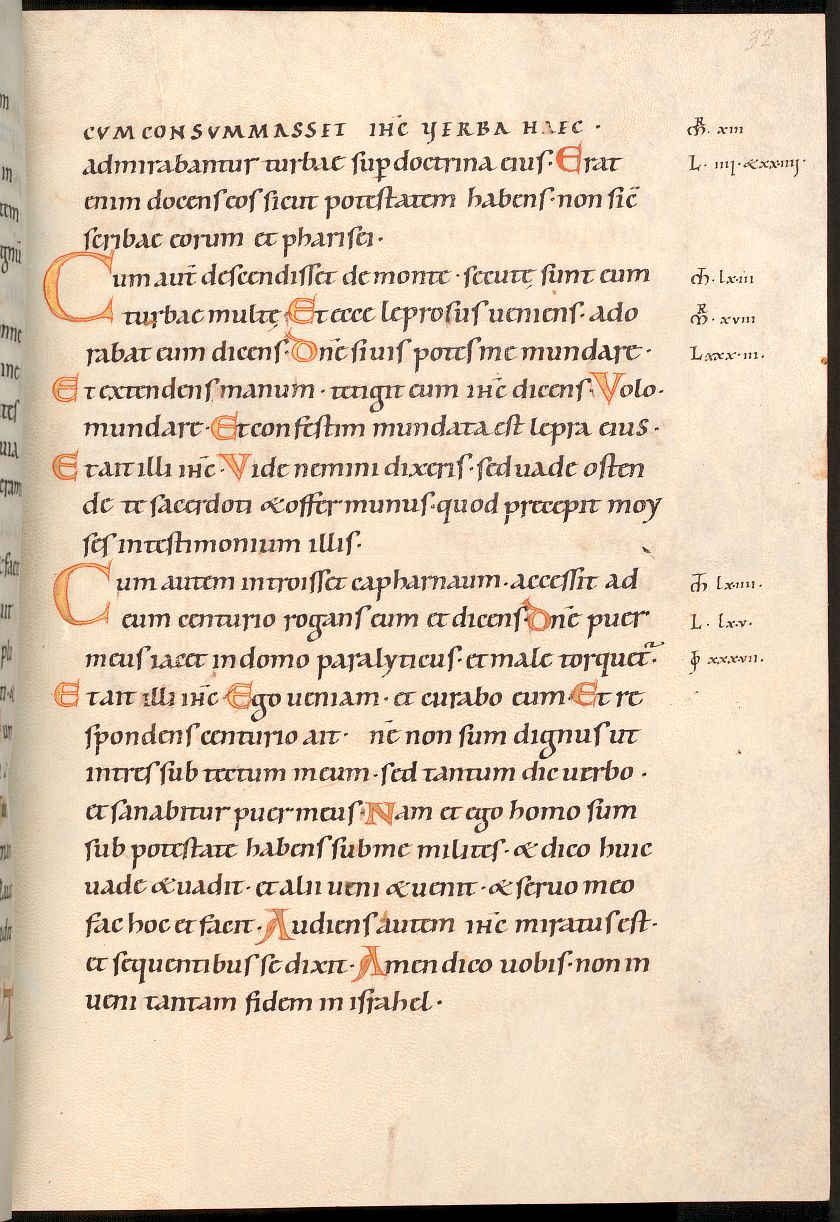 32
CVM CONSVMMASSET IHC̄ VERBA HAEC · M̄R · xiii
admirabantur turbae sup̄ doctrina eius· Erat L · iiij · & xxiiij ·
enim docens eos sicut potestatem habens · non sic̄
scribae eorum et pharisei ·
Cum aut̄ descendisset de monte · secutę sunt eum M̄ · lxiii
turbae multę Et ecce leprosus ueniens · ado M̄R · xviii
rabat eum dicens · Dn̄e si uis potes me mundare · Lxxx · iii ·
Et extendens manum · tetigit eum ihc̄ dicens · Volo ·
mundare · Et confestim mundata est lepra eius ·
Et ait illi ihc̄ · Vide nemini dixeris · sed uade osten
de te sacerdoti & offer munus · quod precepit moy
ses in testimonium illis ·
Cum autem introisset capharnaum · accessit ad M̄ lxiiii ·
eum centurio rogans eum et dicens · Dn̄e puer L · lxv ·
meus iacet in domo paralyticus · et male torquet᷑ · xxxvii ·
Et ait illi ihc̄ · Ego ueniam · et curabo eum · Et re
spondens centurio ait · n̄e non sum dignus ut
intres sub tectum meum · sed tantum dic uerbo ·
et sanabitur puer meus · Nam et ego homo sum
sub potestate habens sub me milites · & dico huic
uade & uadit · et alii ueni & uenit · & seruo meo
fac hoc et facit · Audiens autem ihc̄ miratus est ·
et sequentibus se dixit · Amen dico uobis · non in
ueni tantam fidem in israhel ·